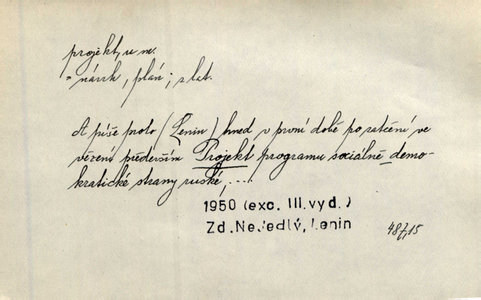 projekt, u m.
= návrh, plán; z lat.
A píše proto (Lenin) hned v první době po zatčení ve
vězení především Projekt programu sociálně demo-
kratické strany ruské, ...
1950 (exc. III. vyd.)
Zd. Nejedlý, Lenin